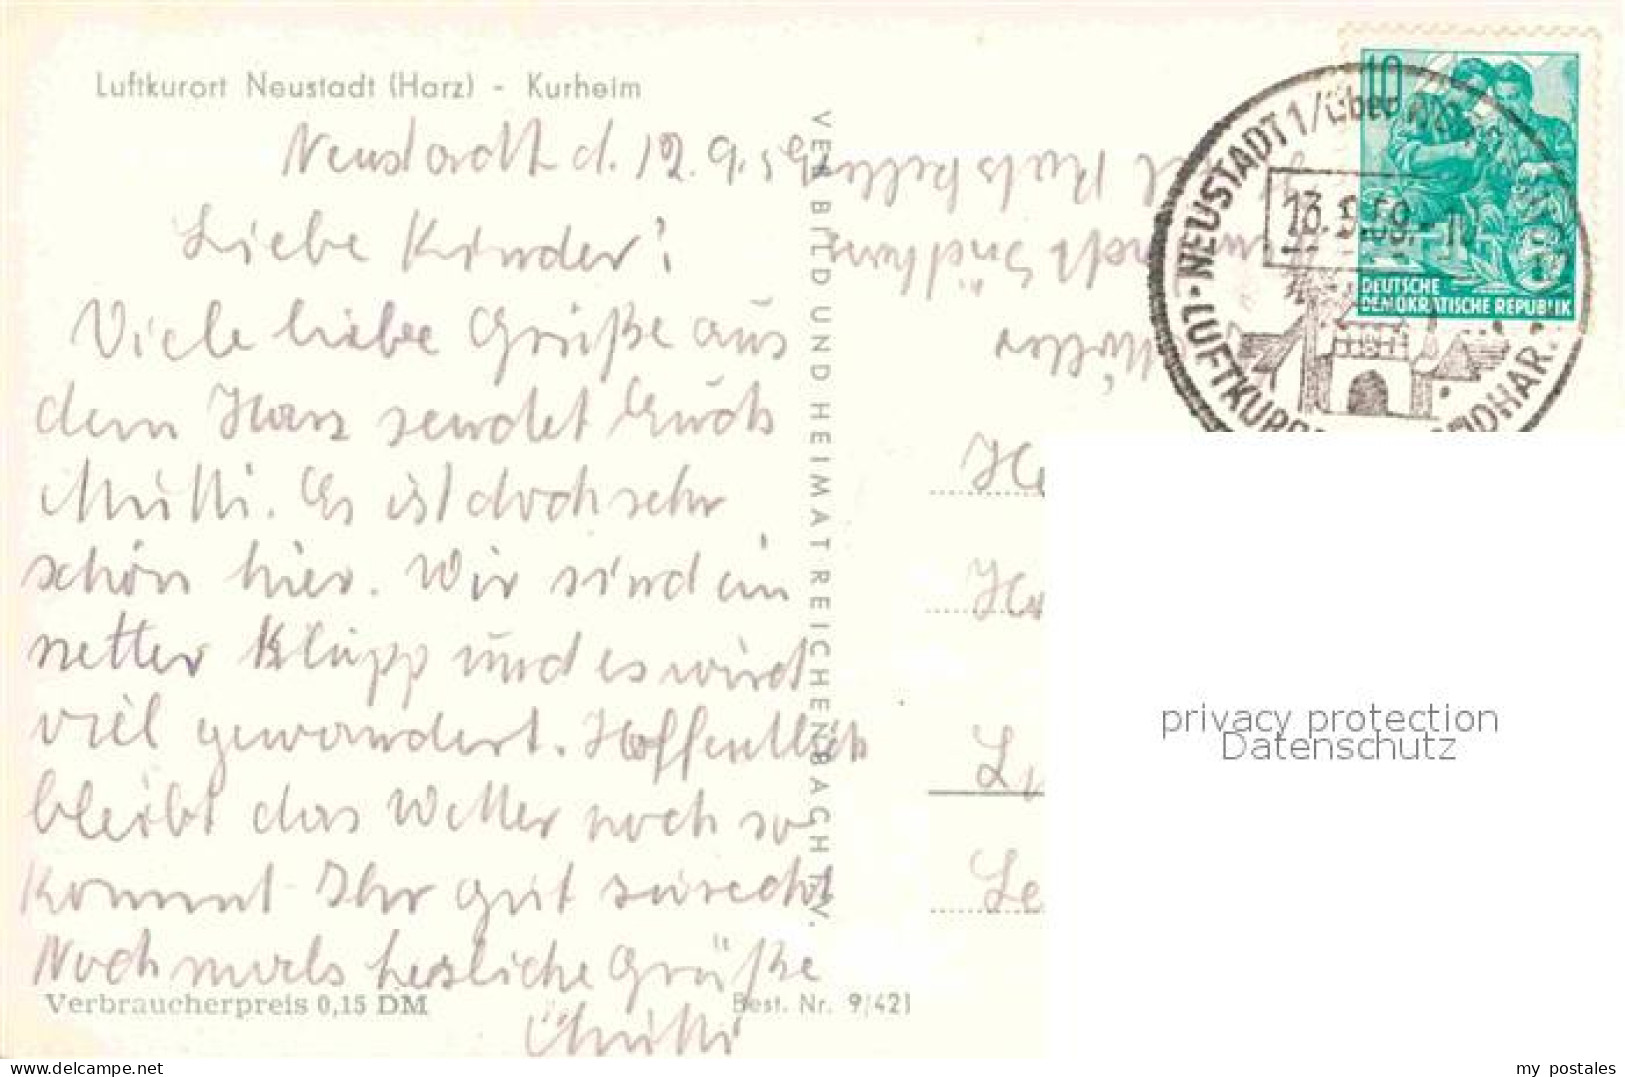 Luftkurort Neustadt (Harz) - Kurheim
Neustadt d. 12.9.59
Liebe Kinder!
Viele liebe Grüße aus
dem Harz sendet Euch
Mutti. Es ist doch sehr
schön hier. Wir sind ein
netter Klupp und es wird
viel gewandert. Hoffentlich
bleibt das Wetter noch so
Kommt Ihr gut zurecht
Nochmals herzliche Grüße
Mutti
Verbraucherpreis 0,15 DM
Best. Nr. 9/421
VEB BILD UND HEIMAT REICHENBACH I. V.
10
DEUTSCHE
DEMOKRATISCHE REPUBLIK
NEUSTADT 1/über
13.9.59.
LUFTKURO
privacy protection
Datenschutz
www.delcampe.net
my_postales